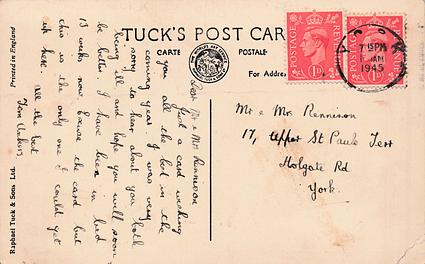 TUCK'S POST CARD
CARTE POSTALE
For Address
Printed in England
Raphael Tuck & Sons, Ltd.
POSTAGE REVENUE
1D
POSTAGE REVENUE
1D
YORK
7 15 PM
1 JAN
1945
Dear Mr & Mrs Rennison
Just a card wishing
you all the best in the
coming year. I was very
sorry to hear about you both
being ill and hope you will soon
be better I have been in bed
13 weeks now. Excuse the card but
this is the only one I could get
in here.
all the best
Tom
Mr & Mrs Rennison
17, Upper St Pauls Terr
Holgate Rd
York.